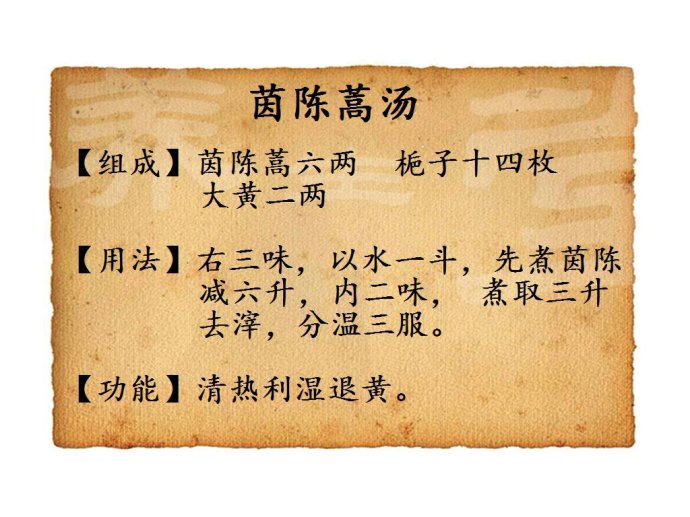 茵陈蒿汤
【组成】茵陈蒿六两 栀子十四枚
大黄二两
【用法】右三味，以水一斗，先煮茵陈
减六升，内二味， 煮取三升
去滓，分温三服。
【功能】清热利湿退黄。